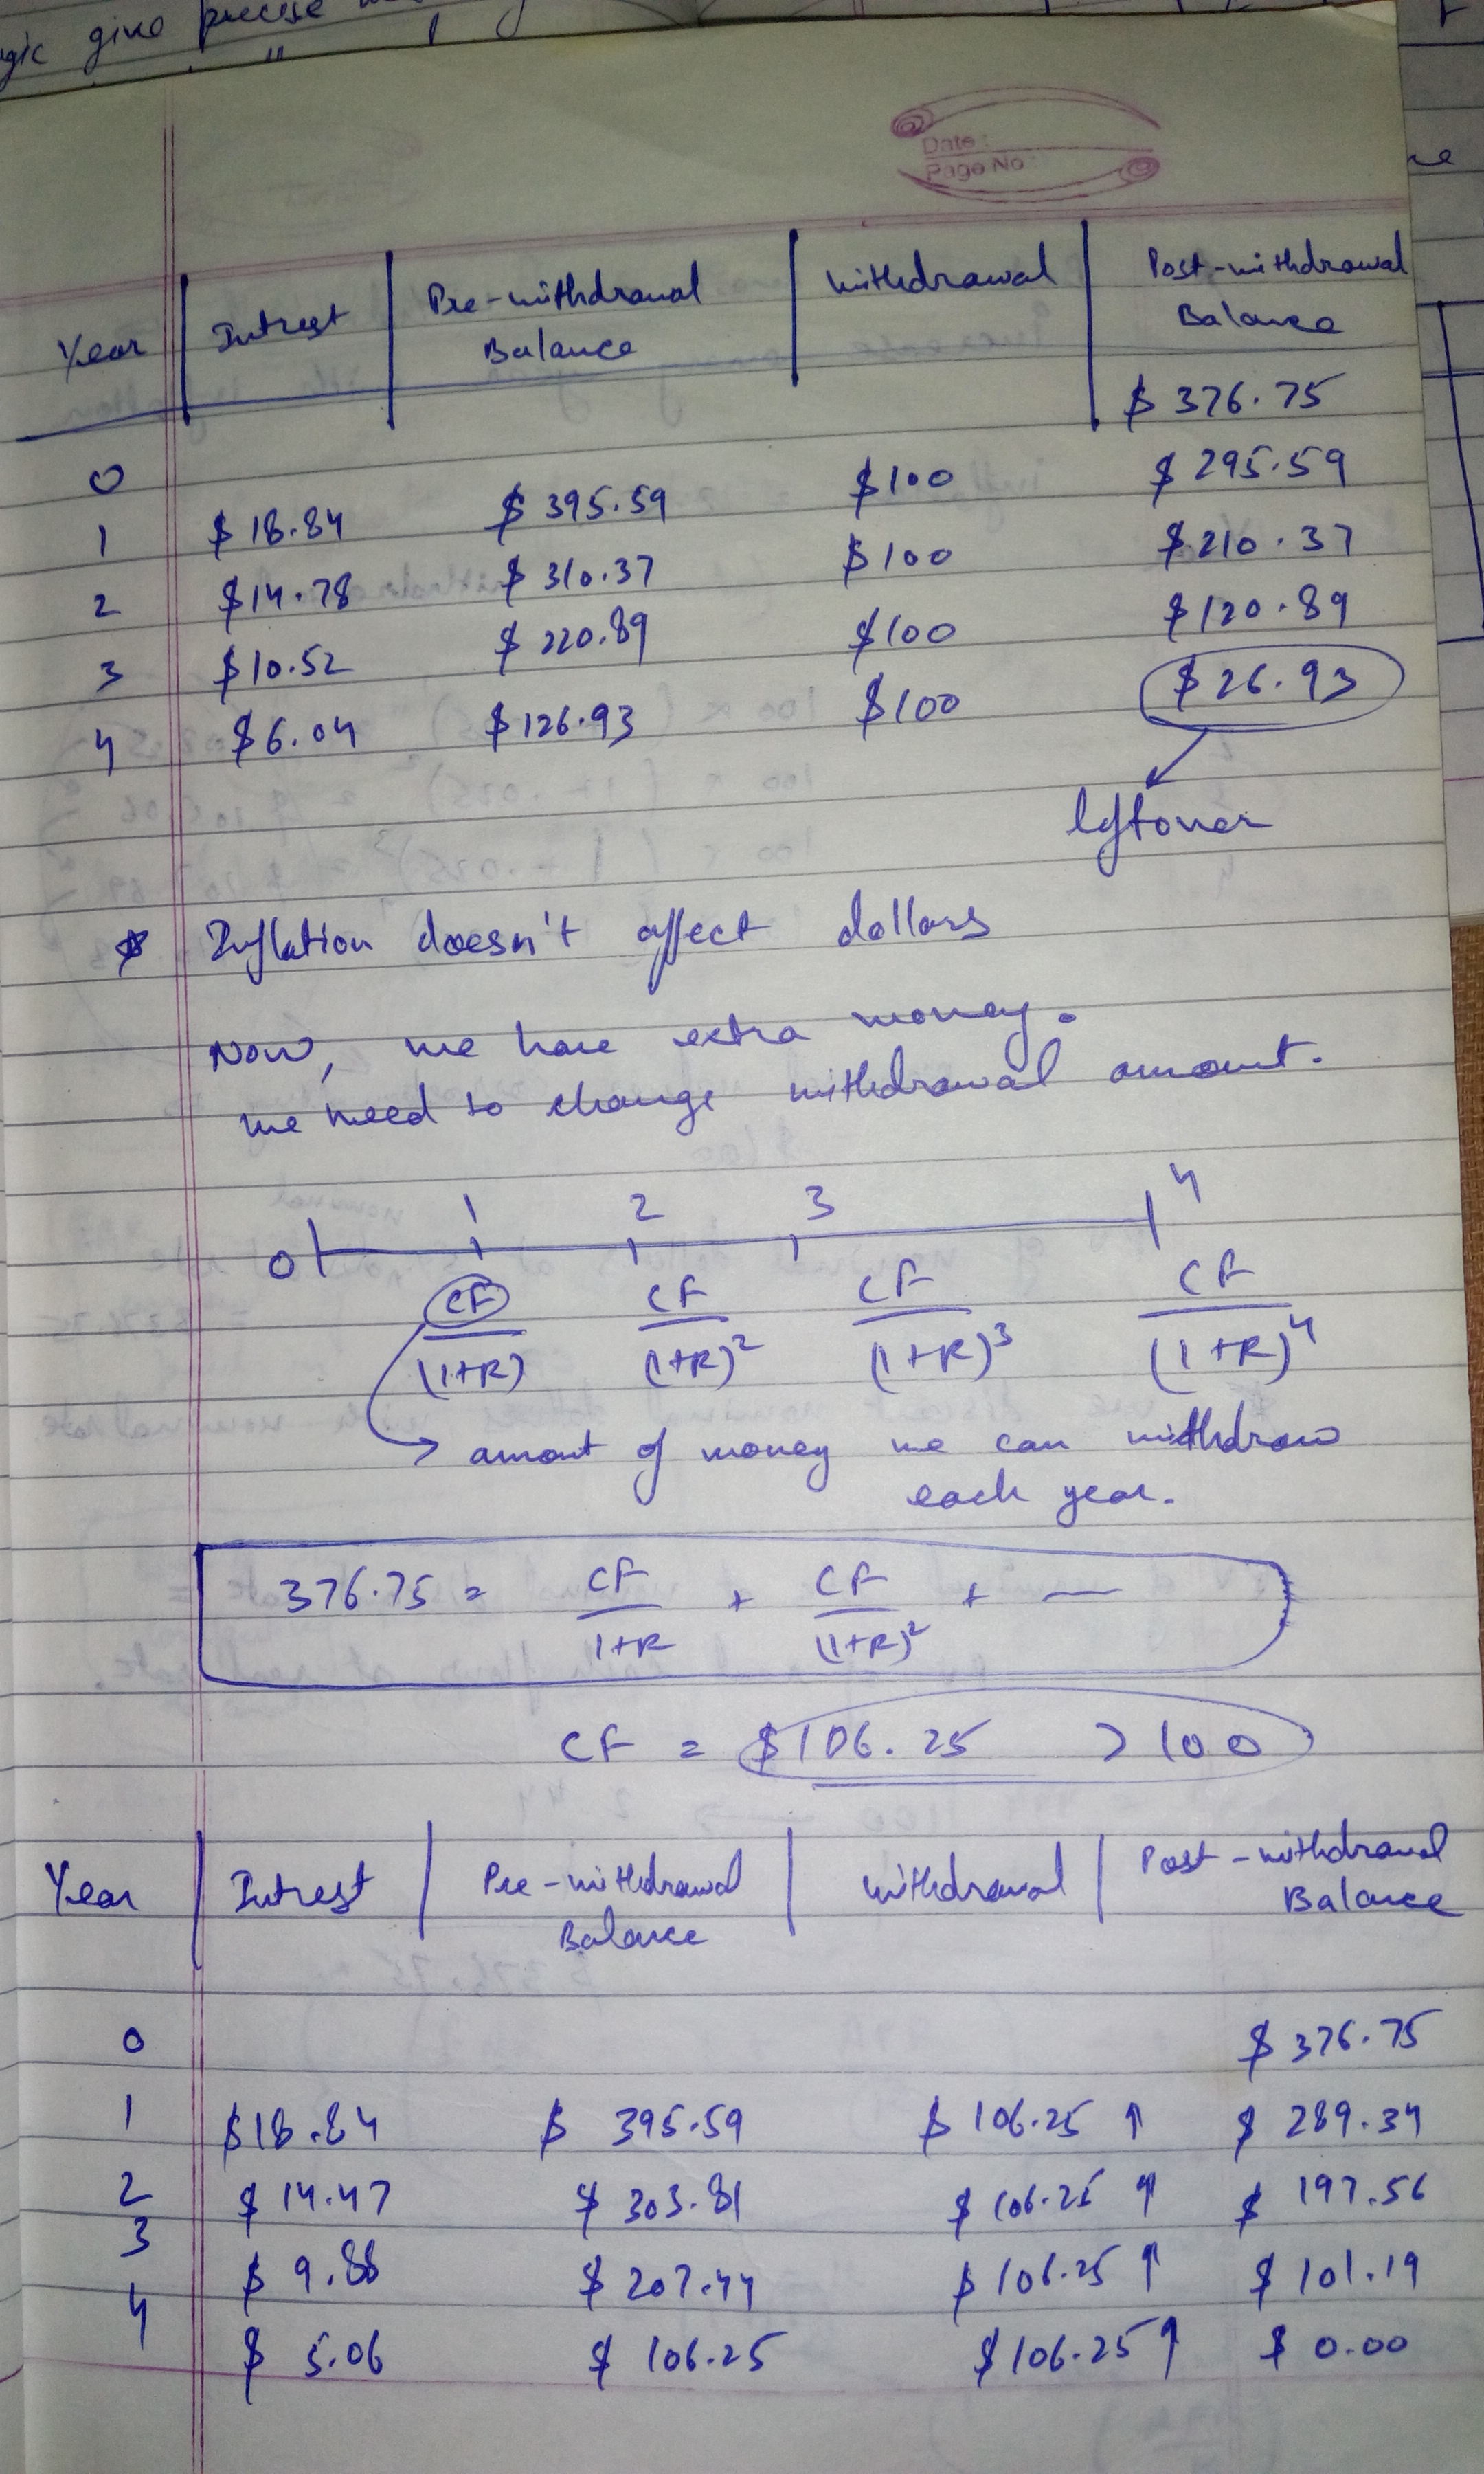 gic give precise
Date :
Page No :
Year | Intrest | Pre-withdrawal Balance | withdrawal | Post-withdrawal Balance
0 $ 376.75
1 $ 18.84 $ 395.59 $100 $ 295.59
2 $14.78 $ 310.37 $100 $210.37
3 $10.52 $ 220.89 $100 $120.89
4 $6.04 $126.93 $100 $26.93
leftover
* Inflation doesn't affect dollars
Now, we have extra money.
we need to change withdrawal amount.
0 1 2 3 4
CF/(1+R) CF/(1+R)² CF/(1+R)³ CF/(1+R)⁴
→ amont of money we can withdraw
each year.
376.75 = CF/1+R + CF/(1+R)² + —
CF = $106.25 > 100
Year | Intrest | Pre-withdrawal Balance | withdrawal | Post-withdrawal Balance
0 $ 376.75
1 $18.84 $ 395.59 $ 106.25 ↑ $ 289.34
2 $ 14.47 $ 303.81 $ 106.25 ↑ $ 197.56
3 $ 9.88 $ 207.44 $ 106.25 ↑ $ 101.19
4 $ 5.06 $ 106.25 $ 106.25 ↑ $ 0.00